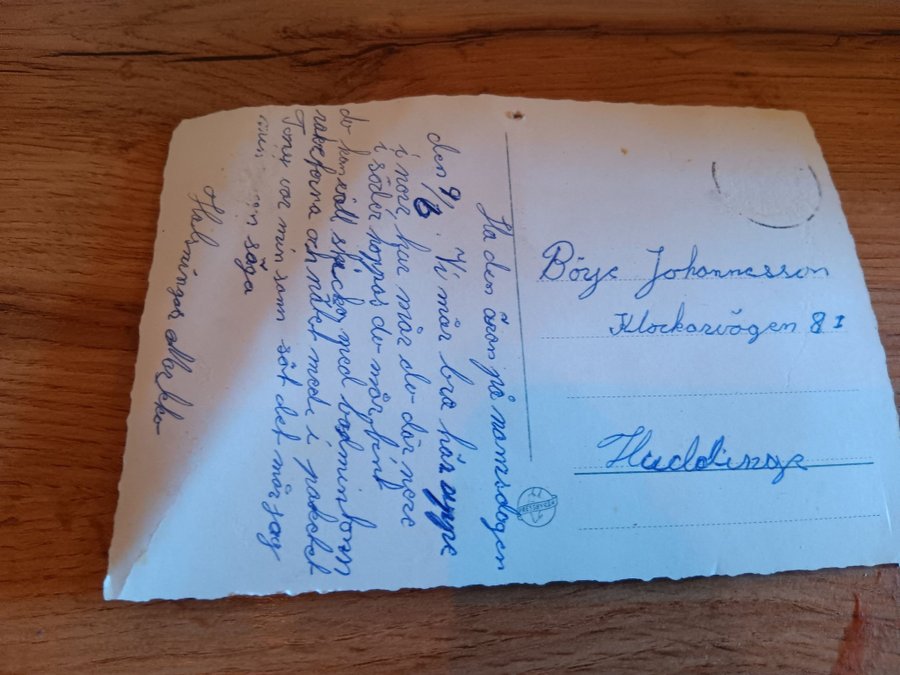 Ha den äran på namnsdagen
den 9/3. Vi mår bra här uppe
i norr, hur mår du där nere
i söder hoppas du mår bra
du kan väll skicka med badminton
racketorna och nätet med i paketet
Tony var min som söt det mår jag
min säga
Hälsningar Markku
Börje Johannesson
Klockarvägen 8 I
Huddinge